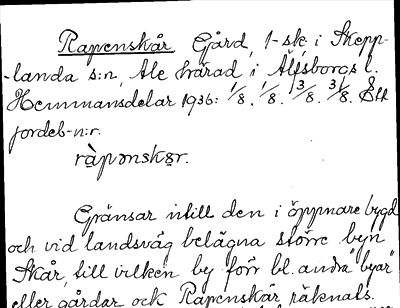 Rapenskår Gård, 1-sk. i Skepp-
-landa s:n, Ale härad i Älvsborgs l.
Hemmansdelar 1936: 1/8. 1/8. 3/8. 3/8. Ett
jordeb-n:r.
ràpənskər.
Gränsar intill den i öppnare bygd
och vid landsväg belägna större byn
Skår, till vilken by förr bl. andra "byar"
eller gårdar ock Rapenskär räknats.